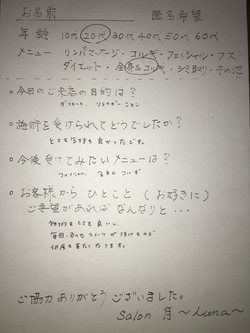 お名前　匿名希望
年齢　10代・20代・30代・40代・50代・60代
メニュー　リンパマッサージ・コルギ・フェイシャル・
ダイエット・全身&コルギ・シミ取り・その他
○今日のご来店の目的は？
ダイエット、リラクゼーション
○施術を受けられてどうでしたか？
とても気持ち良かったです。
○今後受けてみたいメニューは？
フェイシャル、コルギ
○お客様から ひとこと（お好きに）
ご要望があれば なんなりと・・・
とても良いし、
毎回
何度も来たいです。
ご協力ありがとうございました。
Salon 月 〜Luna〜